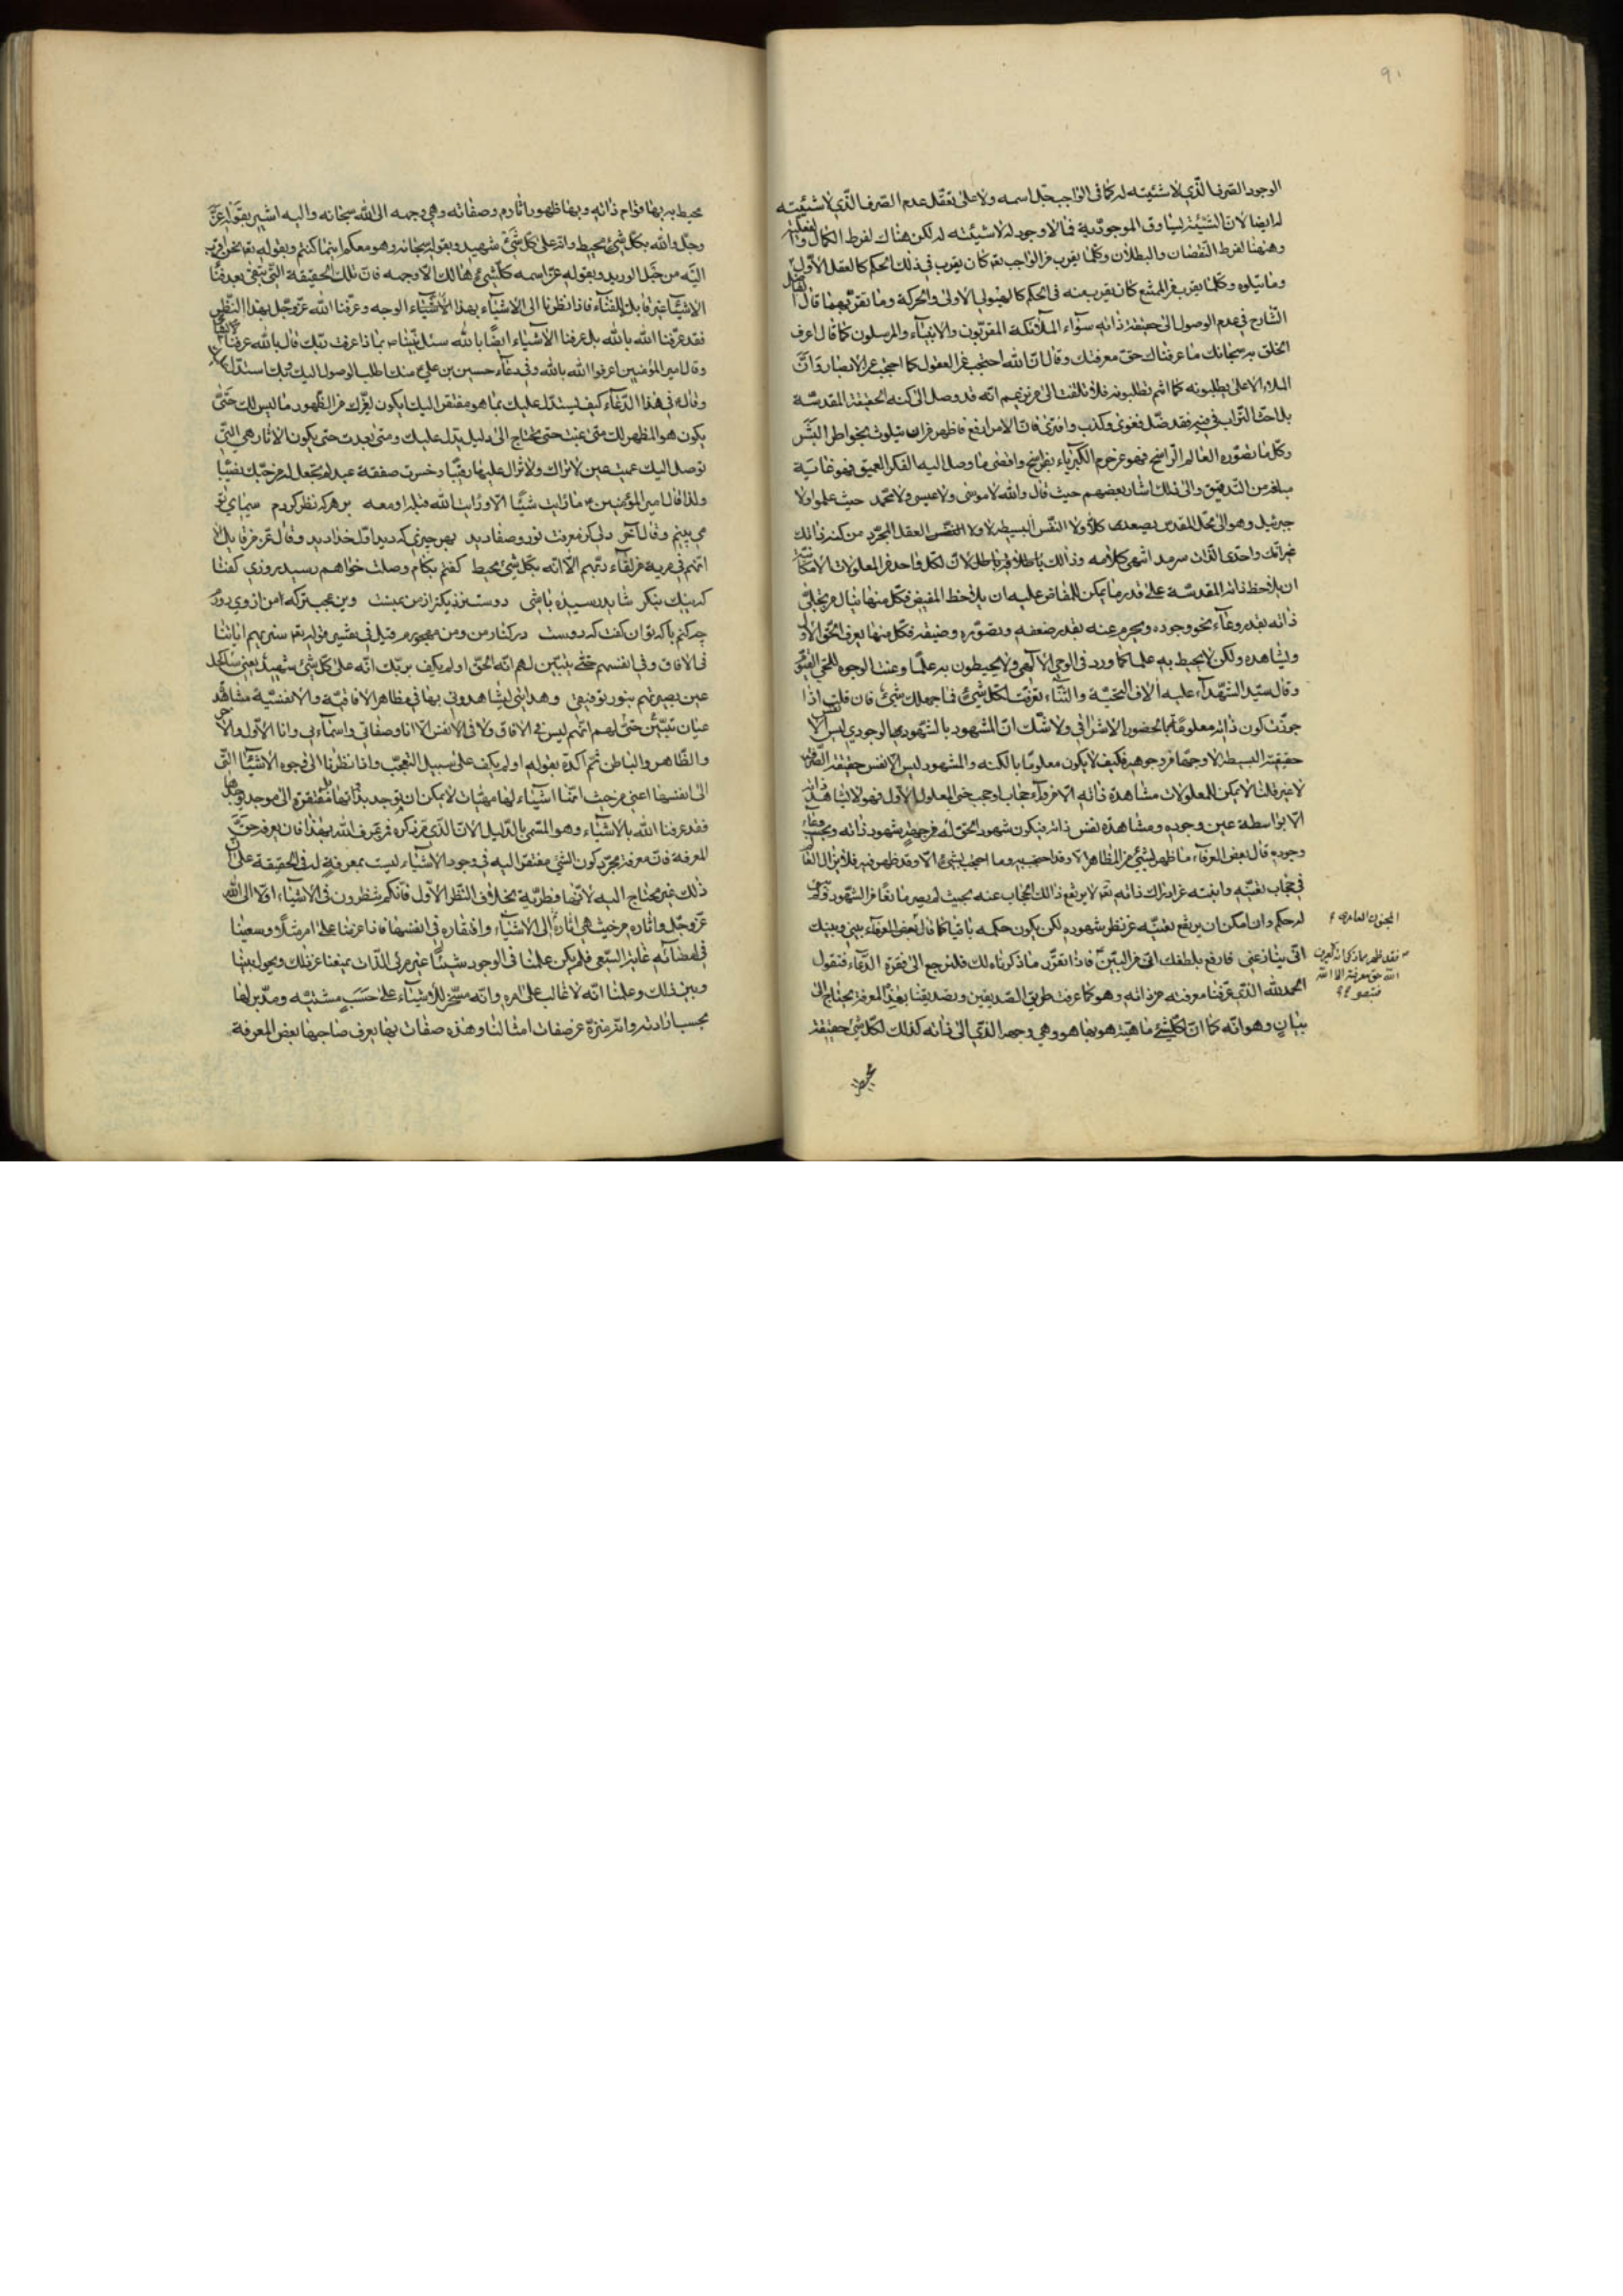 ٩٠
الوجود الصّرف الّذي لا شيئيّته له كما في الواجب جلّ اسمه ولا على تعقّل عدم الصّرف الّذي لا شيئيّته
له ايضا لانّ الشّيئيّة يساوق الموجوديّة فما لا وجود له لا شيئيّته له لكن هناك لفرط الكمال و
وههنا لفرط النّقصان والبطلان وكلّما يقرب من الواجب نعم كان يقرب في ذلك الحكم كالعقل الاوّل
وما يتلوه وكلّما يقرب من الممتنع كان يقرب منه في الحكم كالهيولى الاولى والحركة وما يقرّبهما قال
الشّارح في عدم الوصول الى حقيقة ذاته سوآء الملآئكة المقرّبون والانبيآء والمرسلون كما قال اعرف
الخلق به سبحانك ما عرفناك حقّ معرفتك وقال انّ الله احتجب عن العقول كما احتجب عن الابصار وانّ
الملاء الاعلى يطلبونه كما انتم تطلبونه فلا تلتفت الى من يزعم انّه قد وصل الى كنه الحقيقة المقدسّة
بل احث التّراب في فيه فقد ضلّ وغوى وكذب وافترى فانّ الامر ارفع واظهر من ان يتلوث بخواطر البشر
وكلّ ما تصوّره العالم الرّاسخ فهو عن حرم الكبرياء بفراسخ واقصى ما وصل اليه الفكر العميق فهو غاية
مبلغه من التّدقيق والى ذلك اشار بعضهم حيث قال والله لا موسى ولا عيسى ولا محمّد حيث علموا ولا
جبرئيل وهو الى محلّ القدس يصعد كلّا ولا النّفس البسيط لا ولا العقل المجرّد من كنه ذاتك
غير انّك واحدى الذّات سرمد انتهى كلامه وذلك
ان يلاحظ ذاته المقدسّة على قدر ما يمكن للمفاض عليه ان يلاحظ المفيض فكلّ منها ينال من تجلّي
ذاته بقدر وعآء نحو وجوده ويحرم عنه بقدر ضعفه وقصوره وضيقه فكلّ منها يعرف الحقّ الاوّل
ويشاهده ولكن لا يحيط به علما كما ورد في الوحي الالهي ولا يحيطون به علما وعنت الوجوه للحيّ القيّوم
وقال سيّد الشّهدآء عليه الاف التحيّة والثّنآء تعرّفت لكلّ شيء فما جهلك شيء فان قلت اذا
جوّزت كون ذاته معلومة بالحضور الاشراقي ولا شّك انّ المشهود بالشّهود الوجودي ليس الّا
حقيقته البسيطة لا وجها من وجوهه فكيف لا يكون معلوما بالكنه والمشهود ليس الّا نفس حقيقته الصّرفة
لا غير قلت لا يمكن للمعلولات مشاهدة ذاته الّا من ورآء حجاب او حجب حتى المعلول الاوّل فهو لا يشاهد
الّا بواسطة عين وجوده ومشاهدة نفس ذاته فيكون شهود الحقّ له من جهة شهود ذاته وبحسب
وجوده قال بعض العرفآء ما ظهر بشيء من المظاهر الّا وقد احتجب به وما احتجب بشيء الّا وقد ظهر فيه
في حجاب تعيّنه وانيّته عن ادراك ذاته نعم لا يرتفع ذلك الحجاب عنه بحيث لم يصر مانعا من الشّهود
له حكم وان امكن ان يرتفع تعيّنه عن نظر شهوده لكن يكون حكمه باقيا كما قال بعض العرفآء بيني وبينك
انّي ينازعني فارفع بلطفك انّي من البين فاذا تقرّر ما ذكرناه لك فلنرجع الى فقرة الدّعآء فنقول
الحمد لله الّذي عرّفنا معرفته من ذاته وهو كما عرفت طريق الصّديقين وتصديقنا بهذه المعرفة يحتاج الى
بيان وهو انّه كما انّ لكلّ شيء ماهيّة هو بها هو وهي وجهه الّذي الى ذاته كذلك لكلّ شيء حقيقة
المجنون العامري
محيط
محيط به بها قوام ذاته وبها ظهور اثاره وصفاته وهي وجهه الى الله سبحانه واليه اشير بقوله عزّ
وجلّ والله بكلّ شيء محيط وانّه على كلّ شيء شهيد وبقوله سبحانه وهو معكم اينما كنتم وبقوله تعم نحن اقرب
اليه من حبل الوريد وبقوله عزّ اسمه كلّ شيء هالك الّا وجهه فانّ تلك الحقيقة الّتي تبقى بعد فنآء
الاشيآء غير قابل للفنآء فاذا نظرنا الى الاشيآء بهذا الوجه وعرّفنا الله عزّ وجلّ بهذا النّظر
فقد عرّفنا الله بالله بل عرفنا الاشيآء ايضا بالله سئل نبيّنا ص بماذا عرفت ربّك قال بالله عرفت
وقال امير المؤمنين اعرفوا الله بالله وفي دعآء حسين بن علي ع منك اطلب الوصول اليك وبك استدلّ عليك
وقال في هذا الدّعآء كيف يستدلّ عليك بما هو مفتقر اليك ايكون لغيرك من الظّهور ما ليس لك حتّى
يكون هو المظهر لك متى غبت حتى تحتاج الى دليل يدلّ عليك ومتى بعدت حتى يكون الاثار هي الّتي
توصل اليك عميت عين لا تراك ولا تزال عليها رقيبا وخسرت صفقة عبد لم تجعل له من حبّك نصيبا
ولذا قال امير المؤمنين ع ما رايت شيئا الّا ورايت الله قبله او معه بر هر كه نظر كردم سيماي تو
مي بينم وقال آخر دلى كز معرفت نور وصفا ديد بهر چيزى كه ديد اوّل خدا ديد وقال عزّ من قايل الا
انّهم في مرية من لقآء ربّهم الا انّه بكلّ شيء محيط گفتم بكام وصلت خواهم رسيد روزى گفتا
كه نيك بنگر شايد رسيده باشى دوست نزديكتر از من بمنست وين عجبتر كه من از وي دورم
چه كنم با كه توان گفت كه دوست در كنار من ومن مهجورم قيل في تفسير قوله تعم سنريهم اياتنا
في الافاق وفي انفسهم حتّى يتبيّن لهم انّه الحقّ او لم يكف بربّك انّه على كلّ شيء شهيد يعني
عين بصيرتهم بنور توفيقي وهدايتي ليشاهدوني بها في مظاهر الافاقيّة والانفسيّة مشاهدة
عيان تتبيّن حتّى لهم انّهم ليس في الافاق ولا في الانفس الّا انا وصفاتي واسمآءي وانا الاوّل والآخر
والظّاهر والباطن ثمّ اكّده بقوله او لم يكف على سبيل التعجّب واذا نظرنا الى وجوه الاشيآء الّتي
الى انفسها اعني من حيث انّها اشيآء لها مهيّات لا يمكن ان توجد بذاتها مفتقرة الى موجد
فقد عرفنا الله بالاشيآء وهو المسمّى بالدّليل الانّ الّذي مرّ ذكره فمن يعرف الله بهذا فان يعرفه حقّ
المعرفة فانّ معرفة مجرّد كون الشيء مفتقرا اليه في وجود الاشيآء ليست بمعرفة له في الحقيقة على انّ
ذلك غير محتاج اليه لانّها فطريّة بخلاف النّظر الاوّل فانّكم تنظرون في الاشيآء اوّلا الى الله
عزّ وجلّ واثاره من حيث هي اثاره الى الاشيآء وافتقاره في انفسها فانا عزمنا على امر مثلا وسعينا
في امضآئه غاية السّعي فلم يكن علمنا في الوجود شيئا غير مرئي الذّات يمنعنا عن ذلك ويحول بيننا
وبين ذلك وعلمنا انّه لا غالب على امره وانّه مسخّر للاشيآء على حسب مشيّته ومدّبر لها
بحسب ارادته وانّه منزّه عن صفات امثالنا وهذه صفات بها يعرف صاحبها بعض المعرفة